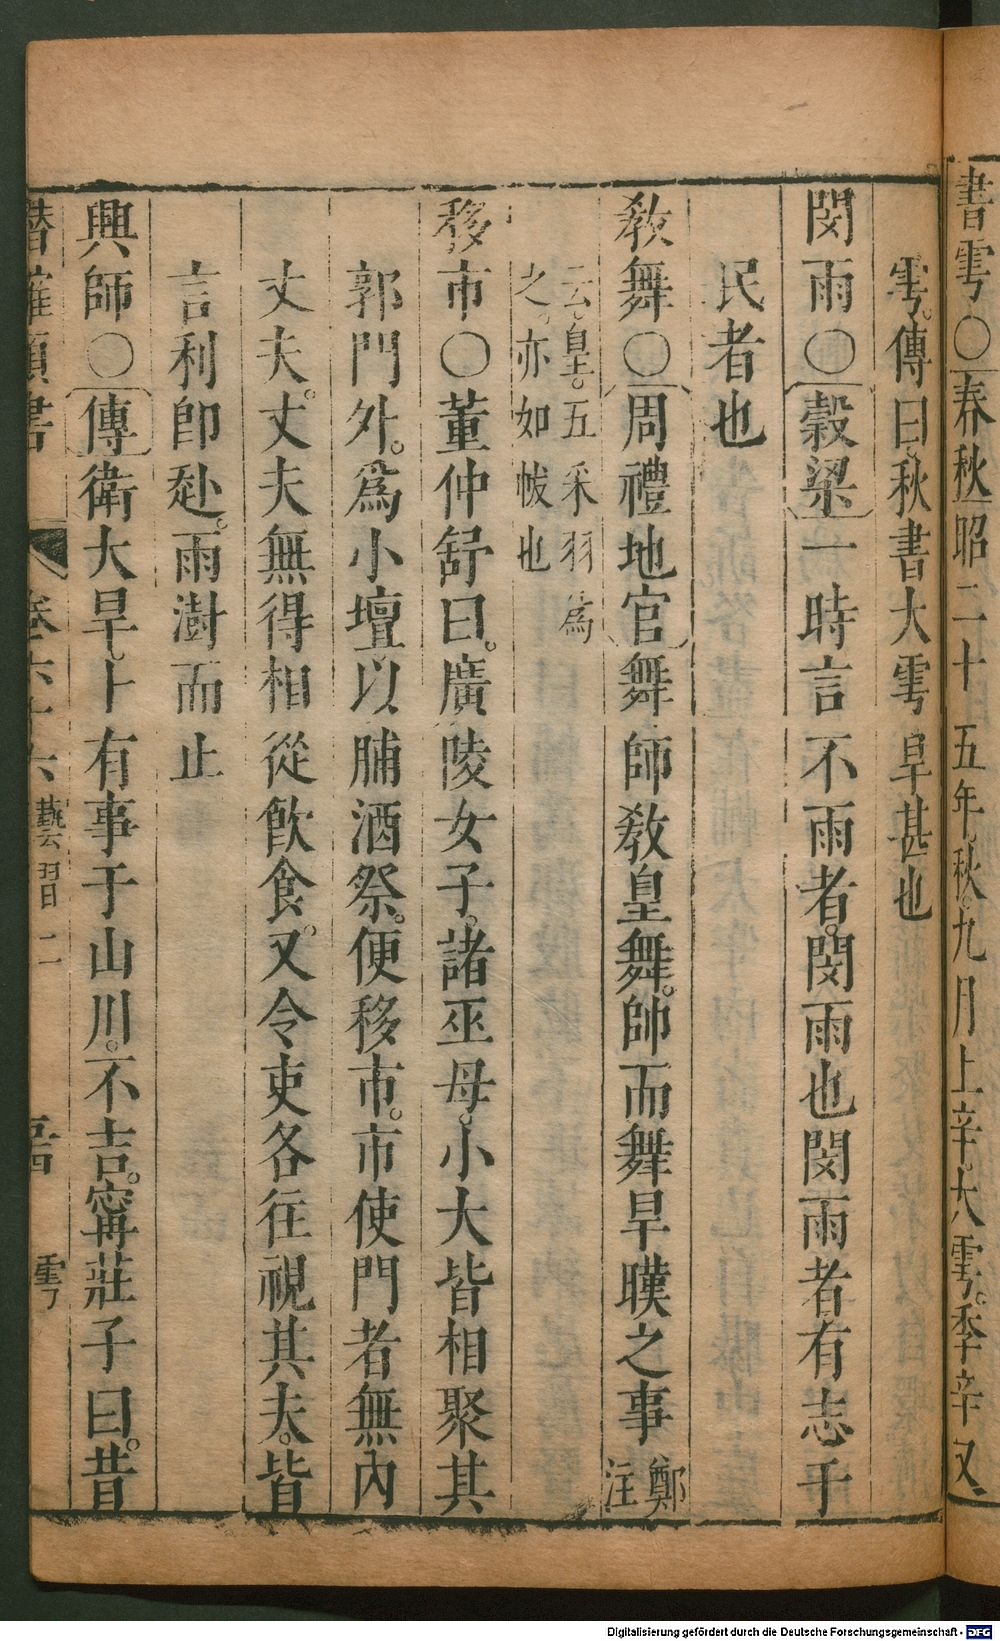 書雩○春秋昭二十五年秋。九月上辛。大雩。季辛又
雩。傳曰。秋書大雩旱甚也
閔雨○穀梁一時言不雨者。閔雨也閔雨者有志于
民者也
教舞○周禮地官舞師教皇舞。帥而舞旱暵之事鄭注
云皇。五采羽為
之。亦如帗也
移市○董仲舒曰。廣陵女子。諸巫母。小大皆相聚其
郭門外。爲小壇以脯酒祭。便移市。市使門者無內
丈夫。丈夫無得相從飲食。又令吏各往視其夫。皆
言利即赴。雨澍而止
興師○傳衛大旱。卜有事于山川。不吉。甯莊子曰。昔
潛確類書 卷六十六 藝習二 雩
Digitalisierung gefördert durch die Deutsche Forschungsgemeinschaft - DFG